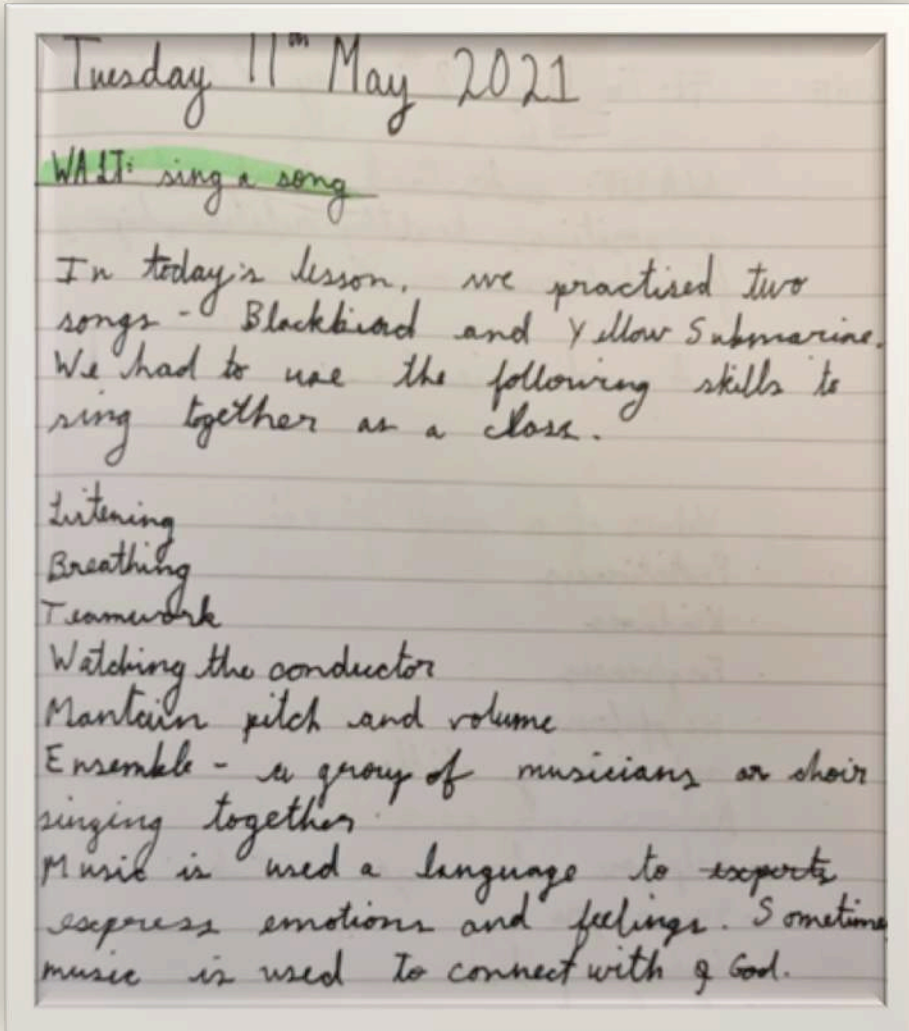 Tuesday 11th May 2021
WALT: sing a song
In today's lesson, we practised two
songs - Blackbird and Yellow Submarine.
We had to use the following skills to
sing together as a class.
Listening
Breathing
Teamwork
Watching the conductor
Mantain pitch and volume
Ensemble - a group of musicians or choir
singing together.
Music is used a language to experts
express emotions and feelings. Sometime
music is used to connect with God.